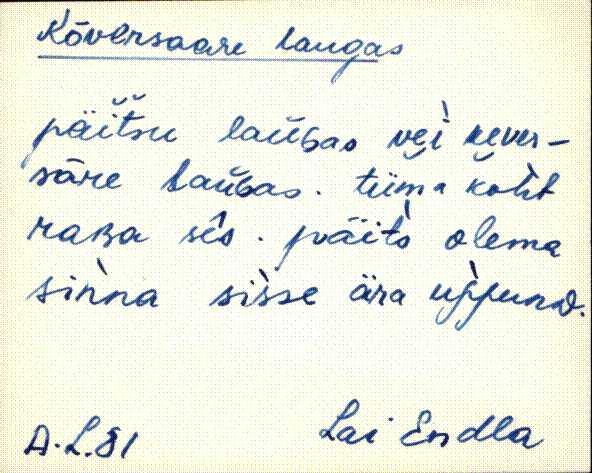 Kõversaare laugas
päĭtsu laŭʙas vèi kever-
sāre laŭʙas. tüm̆a kòht
raʙa sês. päits̀ olema
sìǹna sìsse ära ùppunᴅ.
A.L.81 Lai Endla